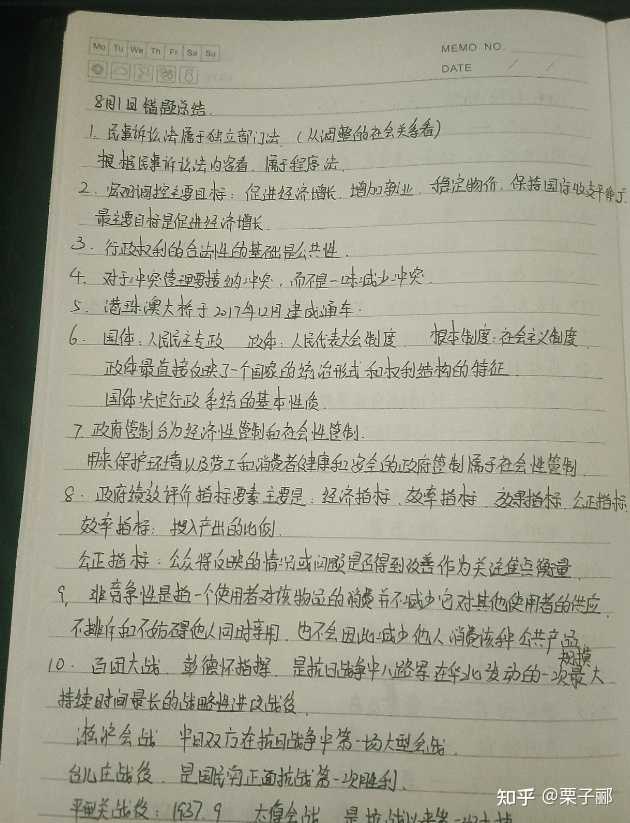 Mo Tu We Th Fr Sa Su
MEMO NO.
DATE / /
8月1日错题总结.
1. 民事诉讼法属于独立部门法.（从调整的社会关系看）
根据民事诉讼法内容看，属于程序法.
2. 宏观调控主要目标：促进经济增长. 增加就业. 稳定物价. 保持国际收支平衡.
最主要目标是促进经济增长.
3. 行政权利的合法性的基础是公共性.
4. 对于冲突管理要接纳冲突，而不是一味减少冲突.
5. 港珠澳大桥于2017年12月建成通车.
6. 国体：人民民主专政 政体：人民代表大会制度. 根本制度：社会主义制度.
政体最直接反映了一个国家的统治形式和权利结构的特征.
国体决定行政系统的基本性质.
7. 政府管制分为经济性管制和社会性管制.
用来保护环境以及劳工和消费者健康和安全的政府管制属于社会性管制.
8. 政府绩效评价指标要素主要是：经济指标. 效率指标. 效果指标. 公正指标.
效率指标：投入产出的比例.
公正指标：公众将反映的情况或问题是否得到改善作为关注焦点衡量.
9. 非竞争性是指一个使用者对该物品的消费并不减少它对其他使用者的供应.
不排斥和不妨碍他人同时享用，也不会因此减少他人消费该种公共产品.
10. 百团大战. 彭德怀指挥. 是抗日战争中八路军在华北发动的一次规模最大
持续时间最长的战略性进攻战役.
淞沪会战 中日双方在抗日战争中第一场大型会战.
台儿庄战役. 是国民党正面抗战第一次胜利.
平型关战役：1937.9 太原会战. 是抗战以来第一次大捷
知乎 @栗子郦